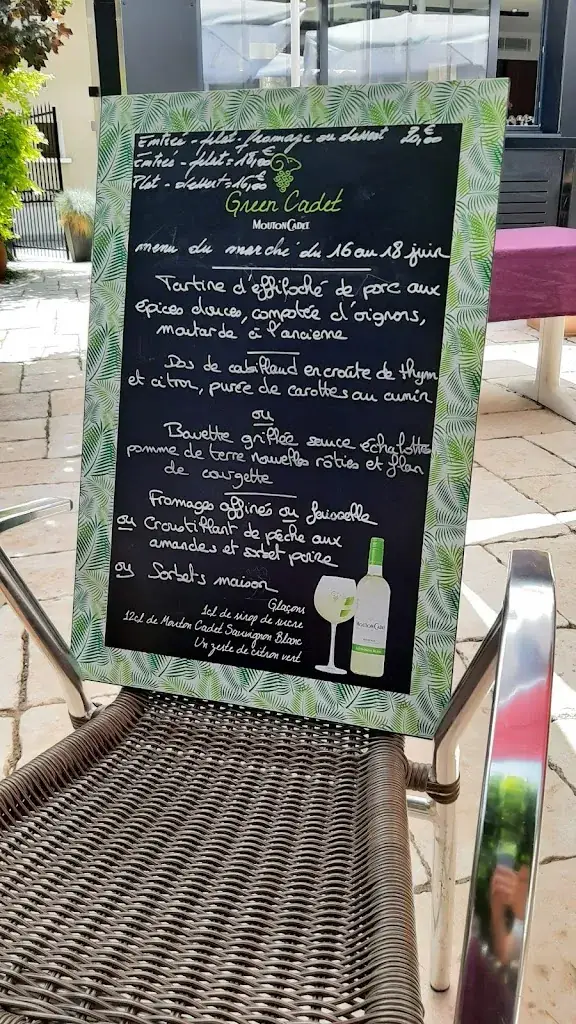 Entrée - plat - fromage ou dessert 20,00€
Entrée - plat = 18,00€
Plat - dessert = 16,00€
Green Cadet
MOUTON CADET
menu du marché du 16 au 18 juin
Tartine d'effiloché de porc aux
épices douces, compotée d'oignons,
moutarde à l'ancienne
Dos de cabillaud en croûte de thym
et citron, purée de carottes au cumin
ou
Bavette grillée sauce échalottes
pomme de terre nouvelles rôties et flan
de courgette
Fromages affinés ou faisselle
ou Croustillant de pêche aux
amandes et sorbet poire
ou Sorbets maison
Glaçons
1cl de sirop de sucre
12cl de Mouton Cadet Sauvignon Blanc
Un zeste de citron vert
MOUTON CADET